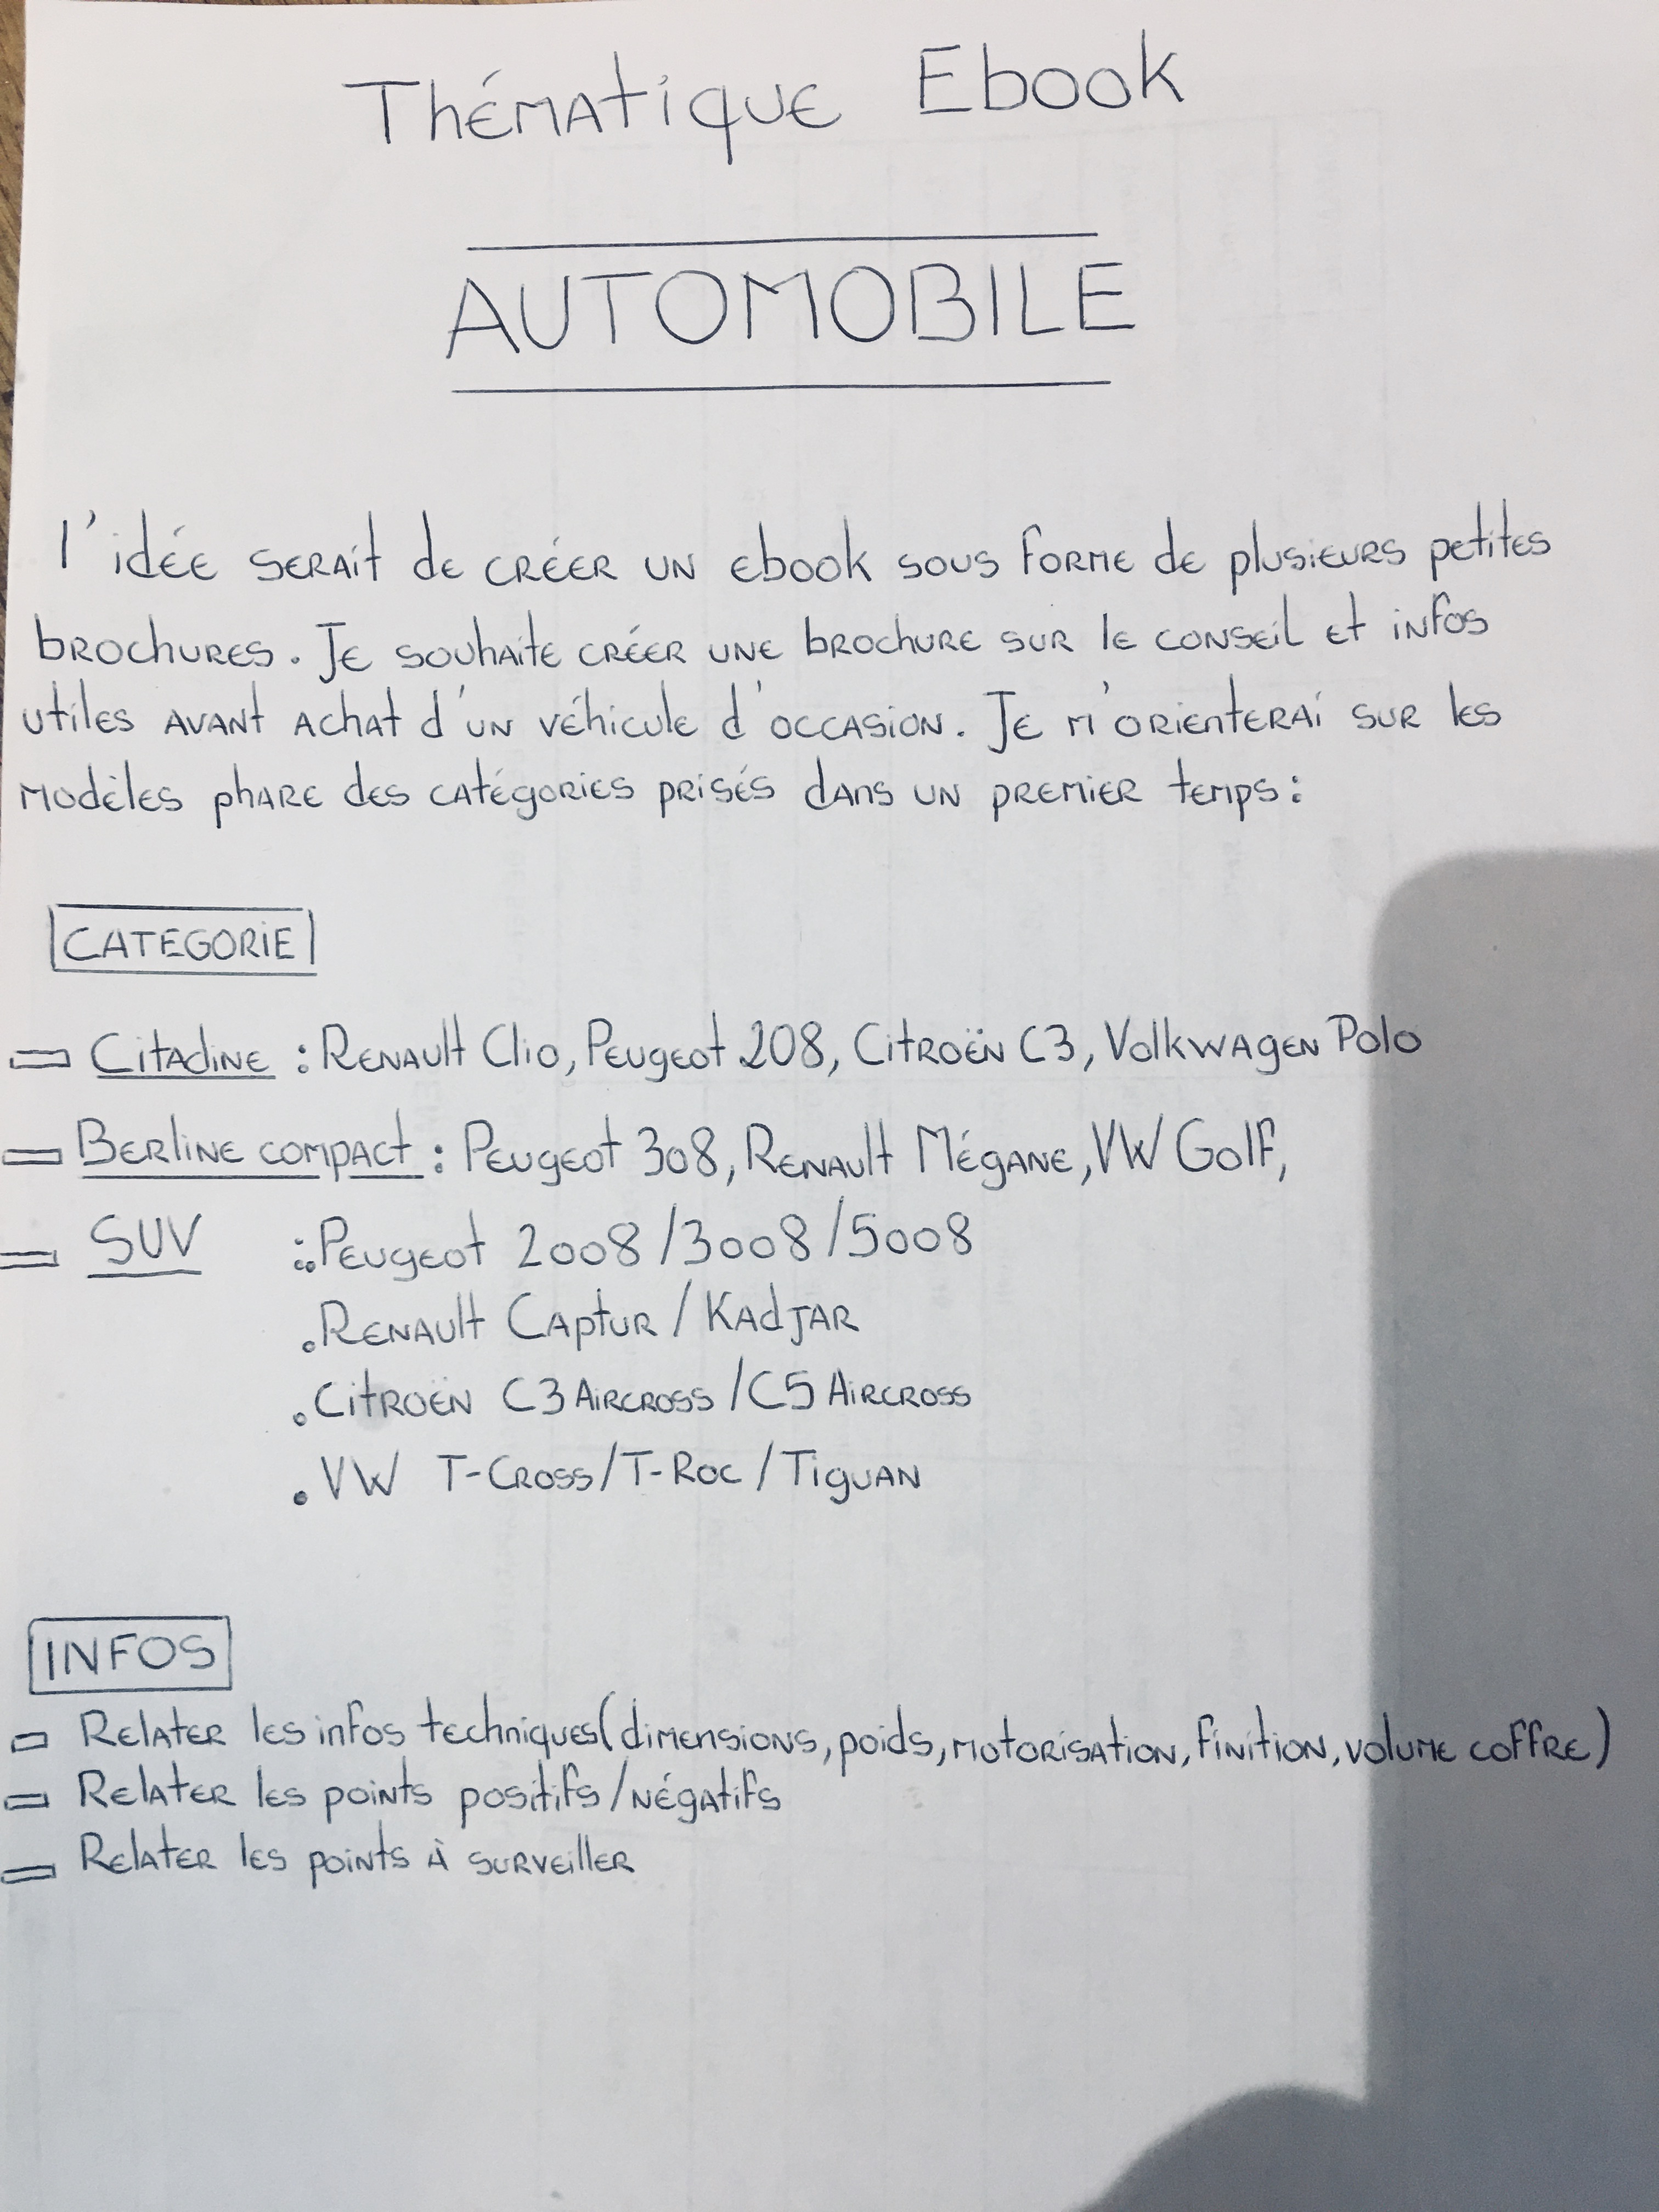 Thématique Ebook
AUTOMOBILE
l'idée serait de créer un ebook sous forme de plusieurs petites
brochures. Je souhaite créer une brochure sur le conseil et infos
utiles avant achat d'un véhicule d'occasion. Je m'orienterai sur les
modèles phare des catégories prisés dans un premier temps :
CATEGORIE
Citadine : Renault Clio, Peugeot 208, Citroën C3, Volkwagen Polo
Berline compact : Peugeot 308, Renault Mégane, VW Golf,
SUV : . Peugeot 2008/3008/5008
. Renault Captur / Kadjar
. Citroën C3 Aircross / C5 Aircross
. VW T-Cross/T-Roc / Tiguan
INFOS
Relater les infos techniques (dimensions, poids, motorisation, finition, volume coffre)
Relater les points positifs/négatifs
Relater les points à surveiller